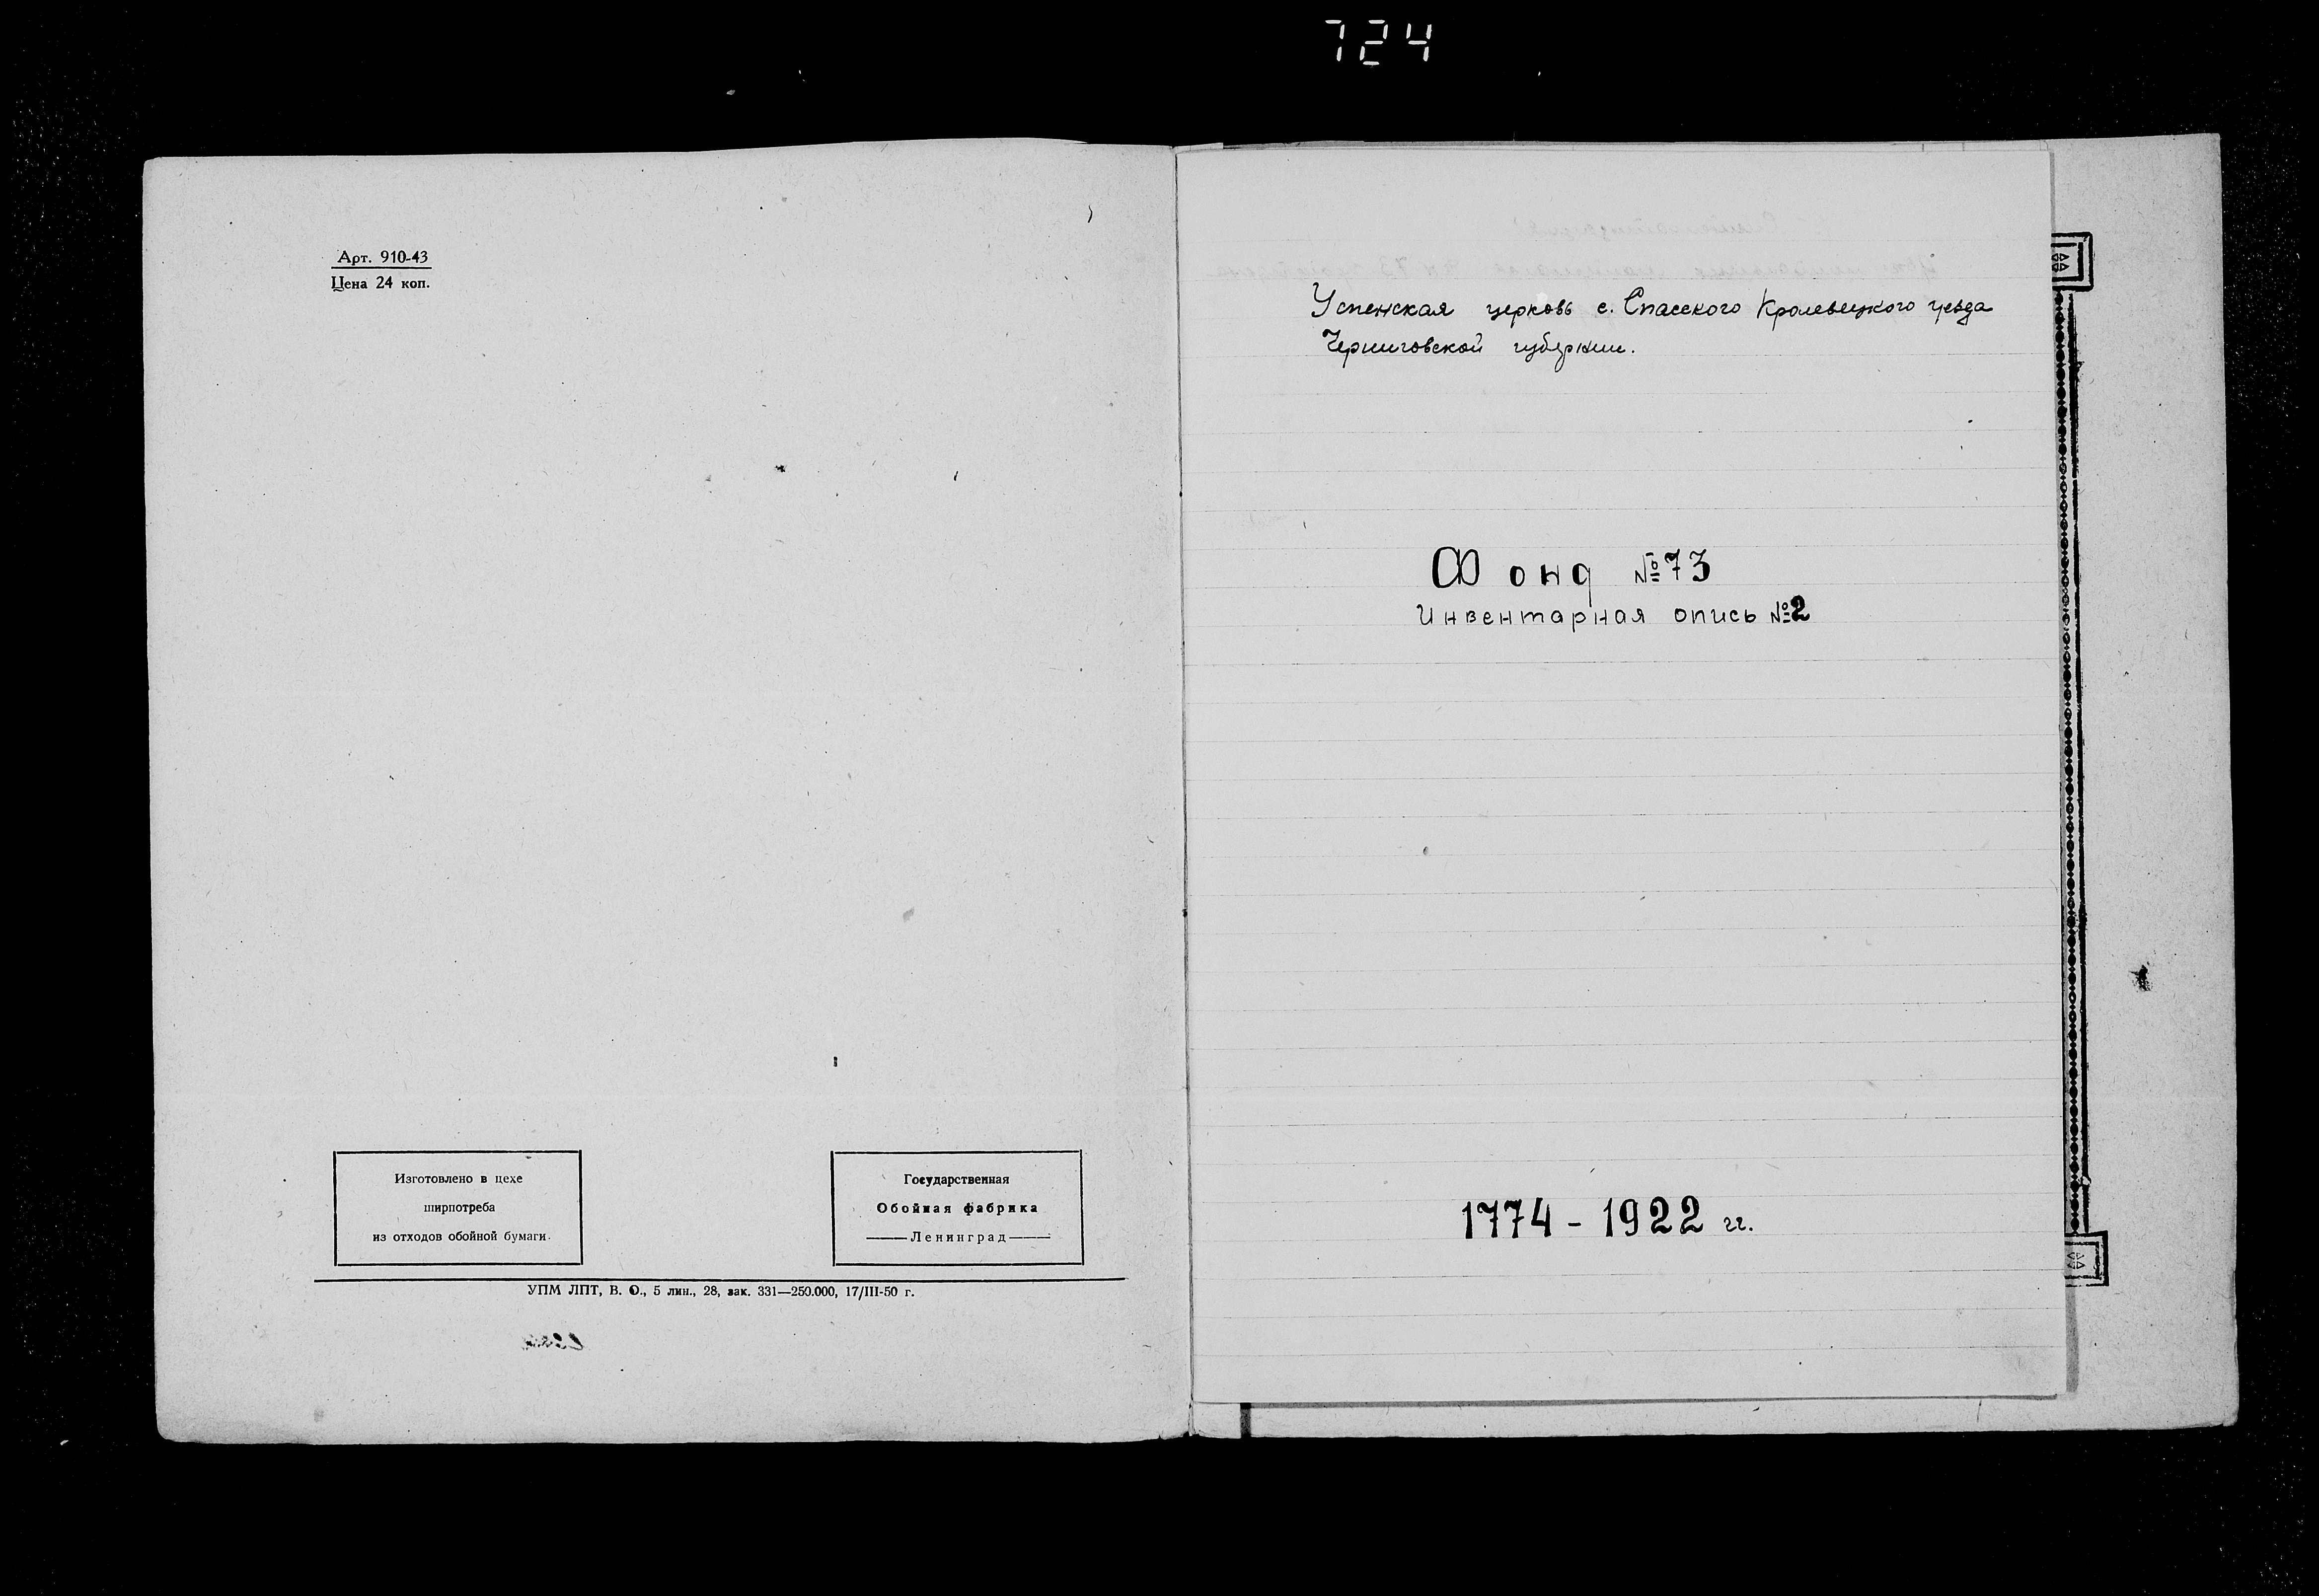 724
Арт. 910-43
Цена 24 коп.
Изготовлено в цехе
ширпотреба
из отходов обойной бумаги.
Государственная
Обойная фабрика
Ленинград
УПМ ЛПТ, В. О., 5 лин., 28, зак. 331—250.000, 17/III-50 г.
Успенская церковь с. Спасского Кролевецкого уезда
Черниговской губернии.
Фонд №73
Инвентарная опись №2
1774 - 1922 гг.